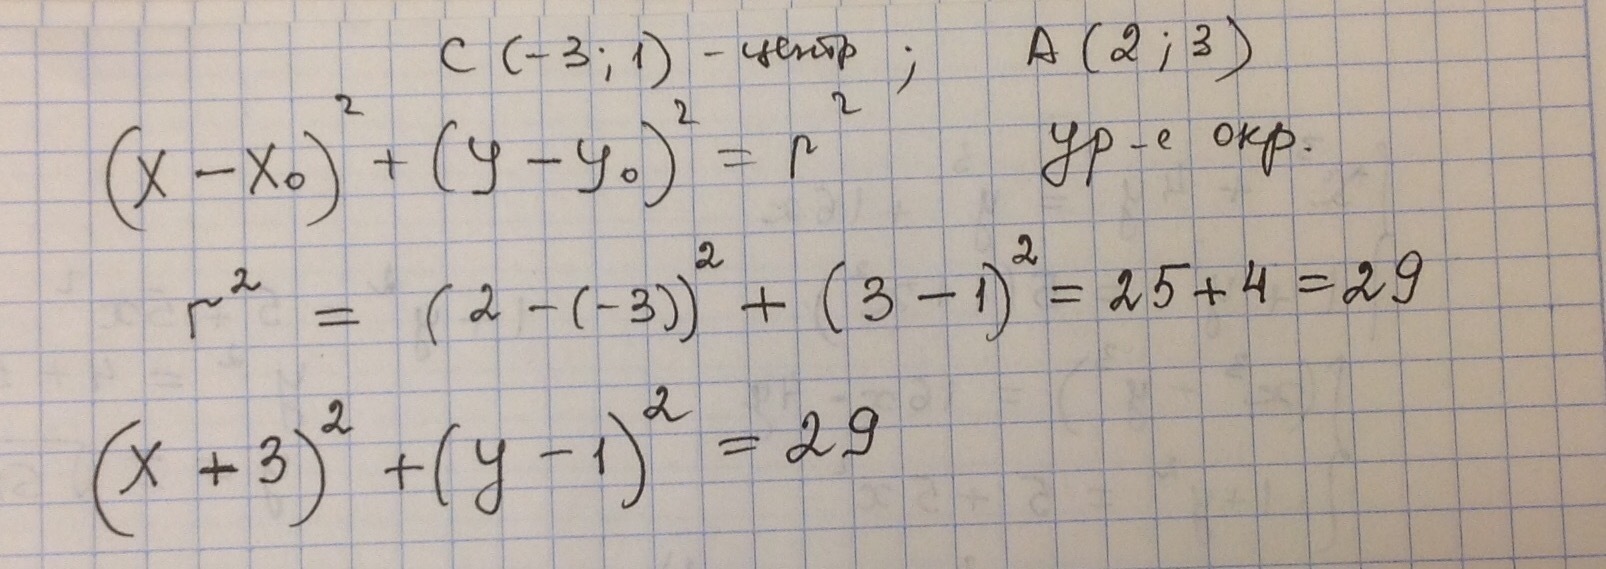 C (-3; 1) - центр ; A (2 ; 3)
(x - x₀)² + (y - y₀)² = r² ур-е окр.
r² = (2 - (-3))² + (3 - 1)² = 25 + 4 = 29
(x + 3)² + (y - 1)² = 29